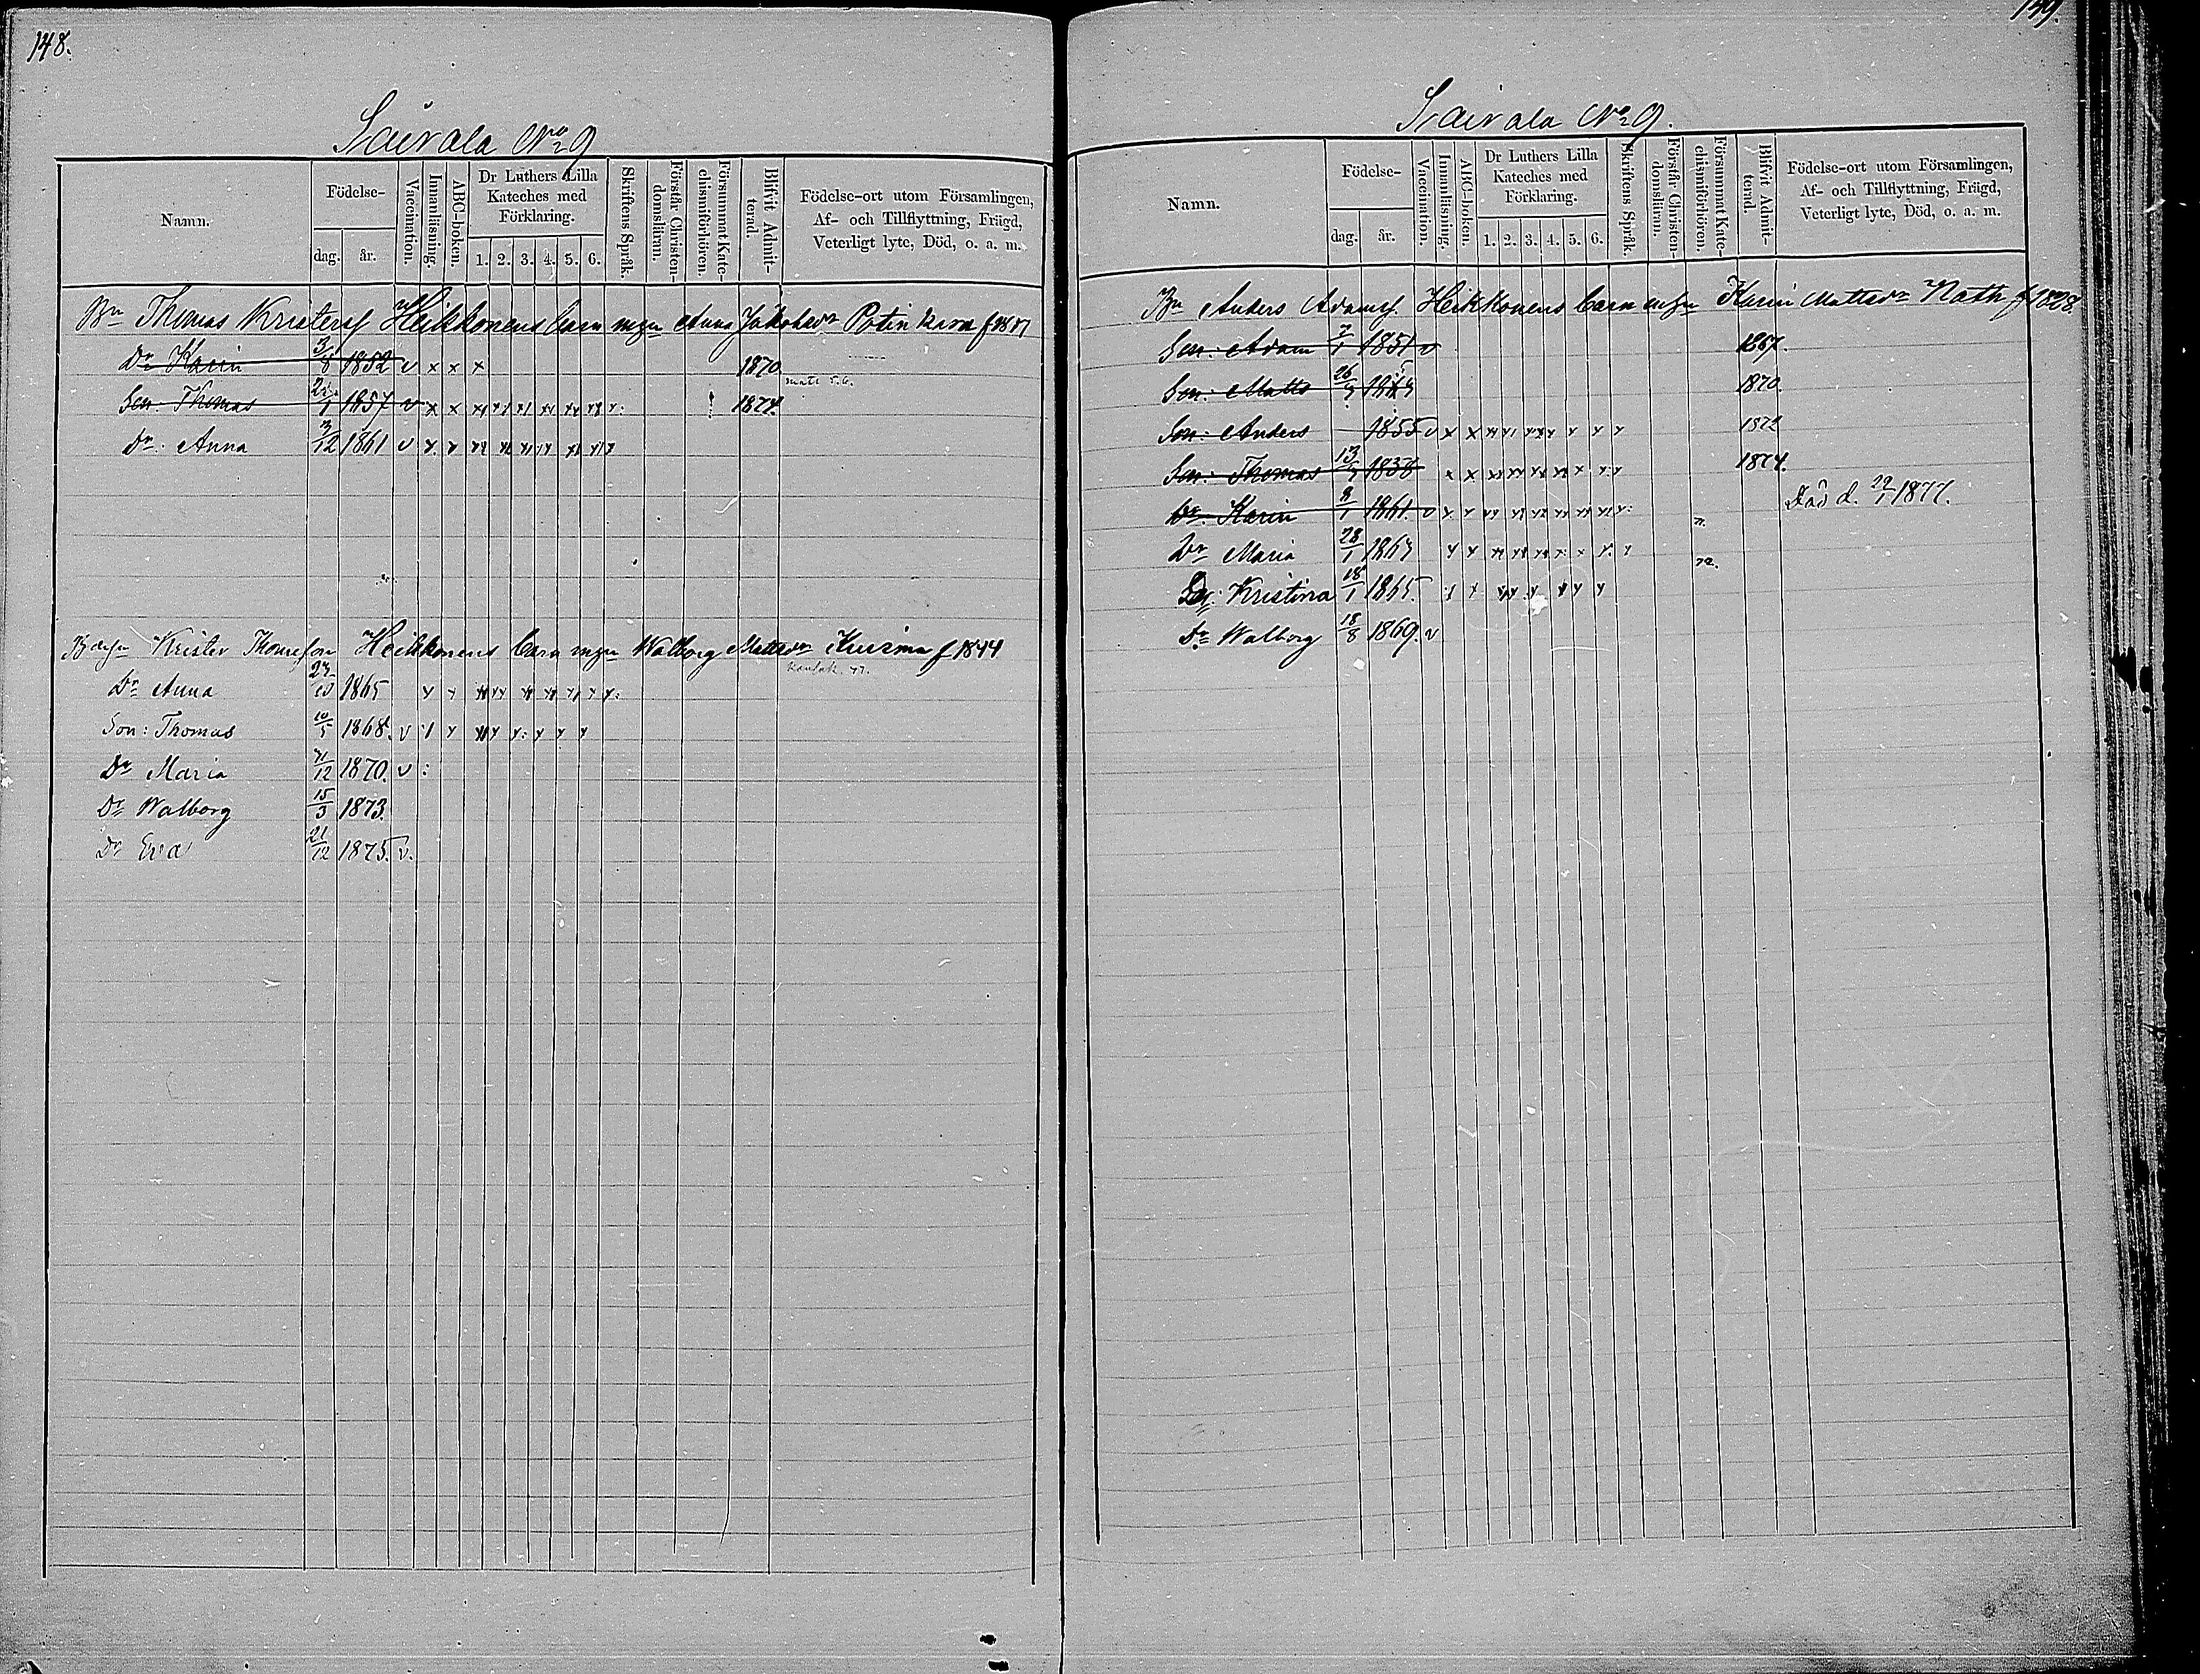 148.
Sairala No 9
Namn.
Födelse-
dag.
år.
Vaccination.
Innanläsning.
ABC-boken.
Dr Luthers Lilla Kateches med Förklaring.
1. 2. 3. 4. 5. 6.
Skriftens Språk.
Förstår Christendomsläran.
Försummat Katechismiförhören.
Blifvit Admitterad.
Födelse-ort utom Församlingen, Af- och Tillflyttning, Frägd, Veterligt lyte, Död, o. a. m.
Bn Thomas Kristersf Heikkonens barn mgn Anna Jakobsdr
Dr Karin 3/8 1852 v x x x 1870
Son: Thomas 1857 v x x 1874
Dr: Anna 3/12 1861 v
Krister Thomesson Heikkonens barn mgn Walborg Mattsdr f 1844
Dr Anna 1865
Son: Thomas 10/5 1868. v
Dr Maria 1870. v
Dr Walborg 15/3 1873.
Dr Eva 21/12 1875. v.
149.
Sairala No 9.
Namn.
Födelse-
dag.
år.
Vaccination.
Innanläsning.
ABC-boken.
Dr Luthers Lilla Kateches med Förklaring.
1. 2. 3. 4. 5. 6.
Skriftens Språk.
Förstår Christendomsläran.
Försummat Katechismiförhören.
Blifvit Admitterad.
Födelse-ort utom Församlingen, Af- och Tillflyttning, Frägd, Veterligt lyte, Död, o. a. m.
Bn Anders Adamsf. Heikkonens barn mgn Karin Mattsdr Nath f 1828.
Son: Adam 7/1 1851 v 1867.
Son: Matts 1870.
Son: Anders 1855 v x x 1872
Son: Thomas 1858 x x 1874.
Dr. Karin 8/1 1861. v x Död d. 22/1 1877.
Dr Maria 28/1
Dr: Kristina 18/1 1865.
Dr Walborg 18/8 1869. v